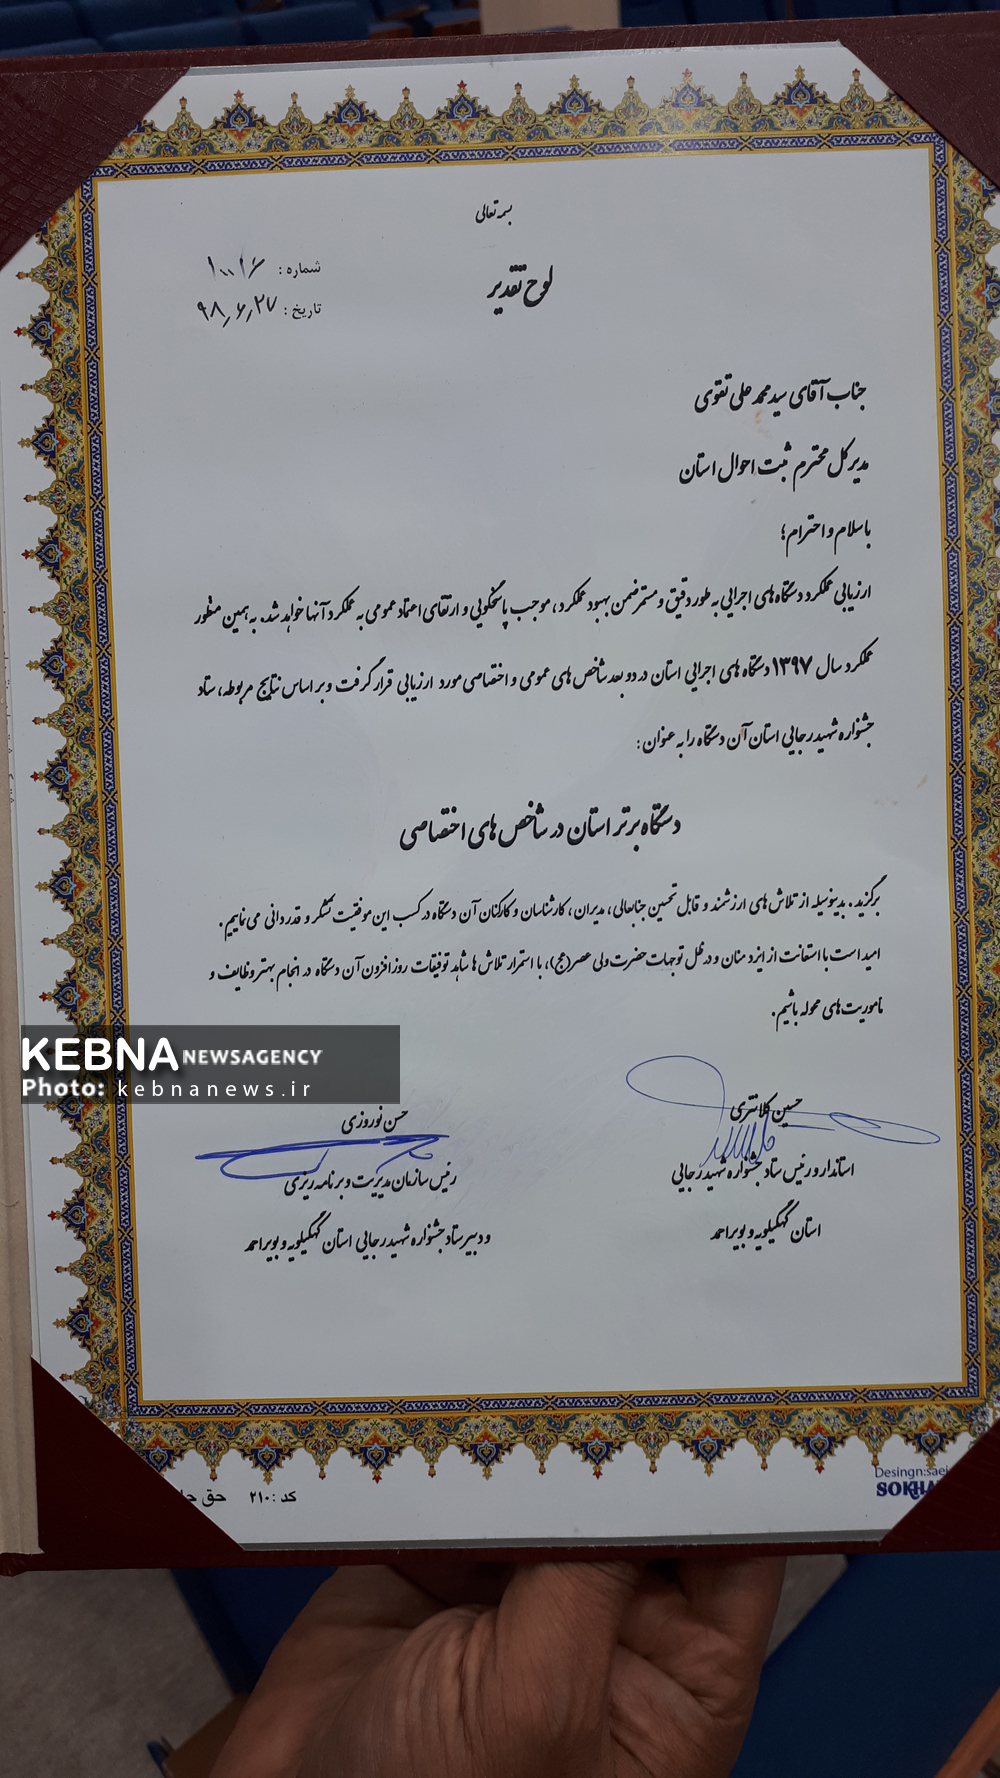 بسمه تعالی
لوح تقدیر
شماره :
تاریخ : ۹۸٫۶٫۲۷
جناب آقای سید محمد علی تقوی
مدیر کل محترم ثبت احوال استان
با سلام و احترام؛
ارزیابی عملکرد دستگاه‌های اجرایی به طور دقیق و مستمر ضمن بهبود عملکرد، موجب پاسخگویی و ارتقای اعتماد عمومی به عملکرد آنها خواهد شد. به همین منظور
عملکرد سال ۱۳۹۷ دستگاه های اجرایی استان در دو بعد شاخص های عمومی و اختصاصی مورد ارزیابی قرار گرفت و بر اساس نتایج مربوطه، ستاد
جشنواره شهید رجایی استان آن دستگاه را به عنوان :
دستگاه برتر استان در شاخص های اختصاصی
برگزید. بدینوسیله از تلاش های ارزشمند و قابل تحسین جنابعالی، مدیران، کارشناسان و کارکنان آن دستگاه در کسب این موفقیت تشکر و قدردانی می نماییم.
امید است با استعانت از ایزد منان و در ظل توجهات حضرت ولی عصر(عج)، با استمرار تلاش ها شاهد توفیقات روز افزون آن دستگاه در انجام بهتر وظایف و
ماموریت های محوله باشیم.
KEBNA NEWSAGENCY
Photo: kebnanews.ir
حسین کلانتری
استاندار و رئیس ستاد جشنواره شهید رجایی
استان کهگیلویه و بویراحمد
حسن نوروزی
رئیس سازمان مدیریت و برنامه ریزی
و دبیر ستاد جشنواره شهید رجایی استان کهگیلویه و بویراحمد
کد : ۲۱۰ حق
Desingn:saei